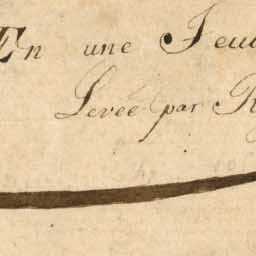 En une Feu
Levée par R